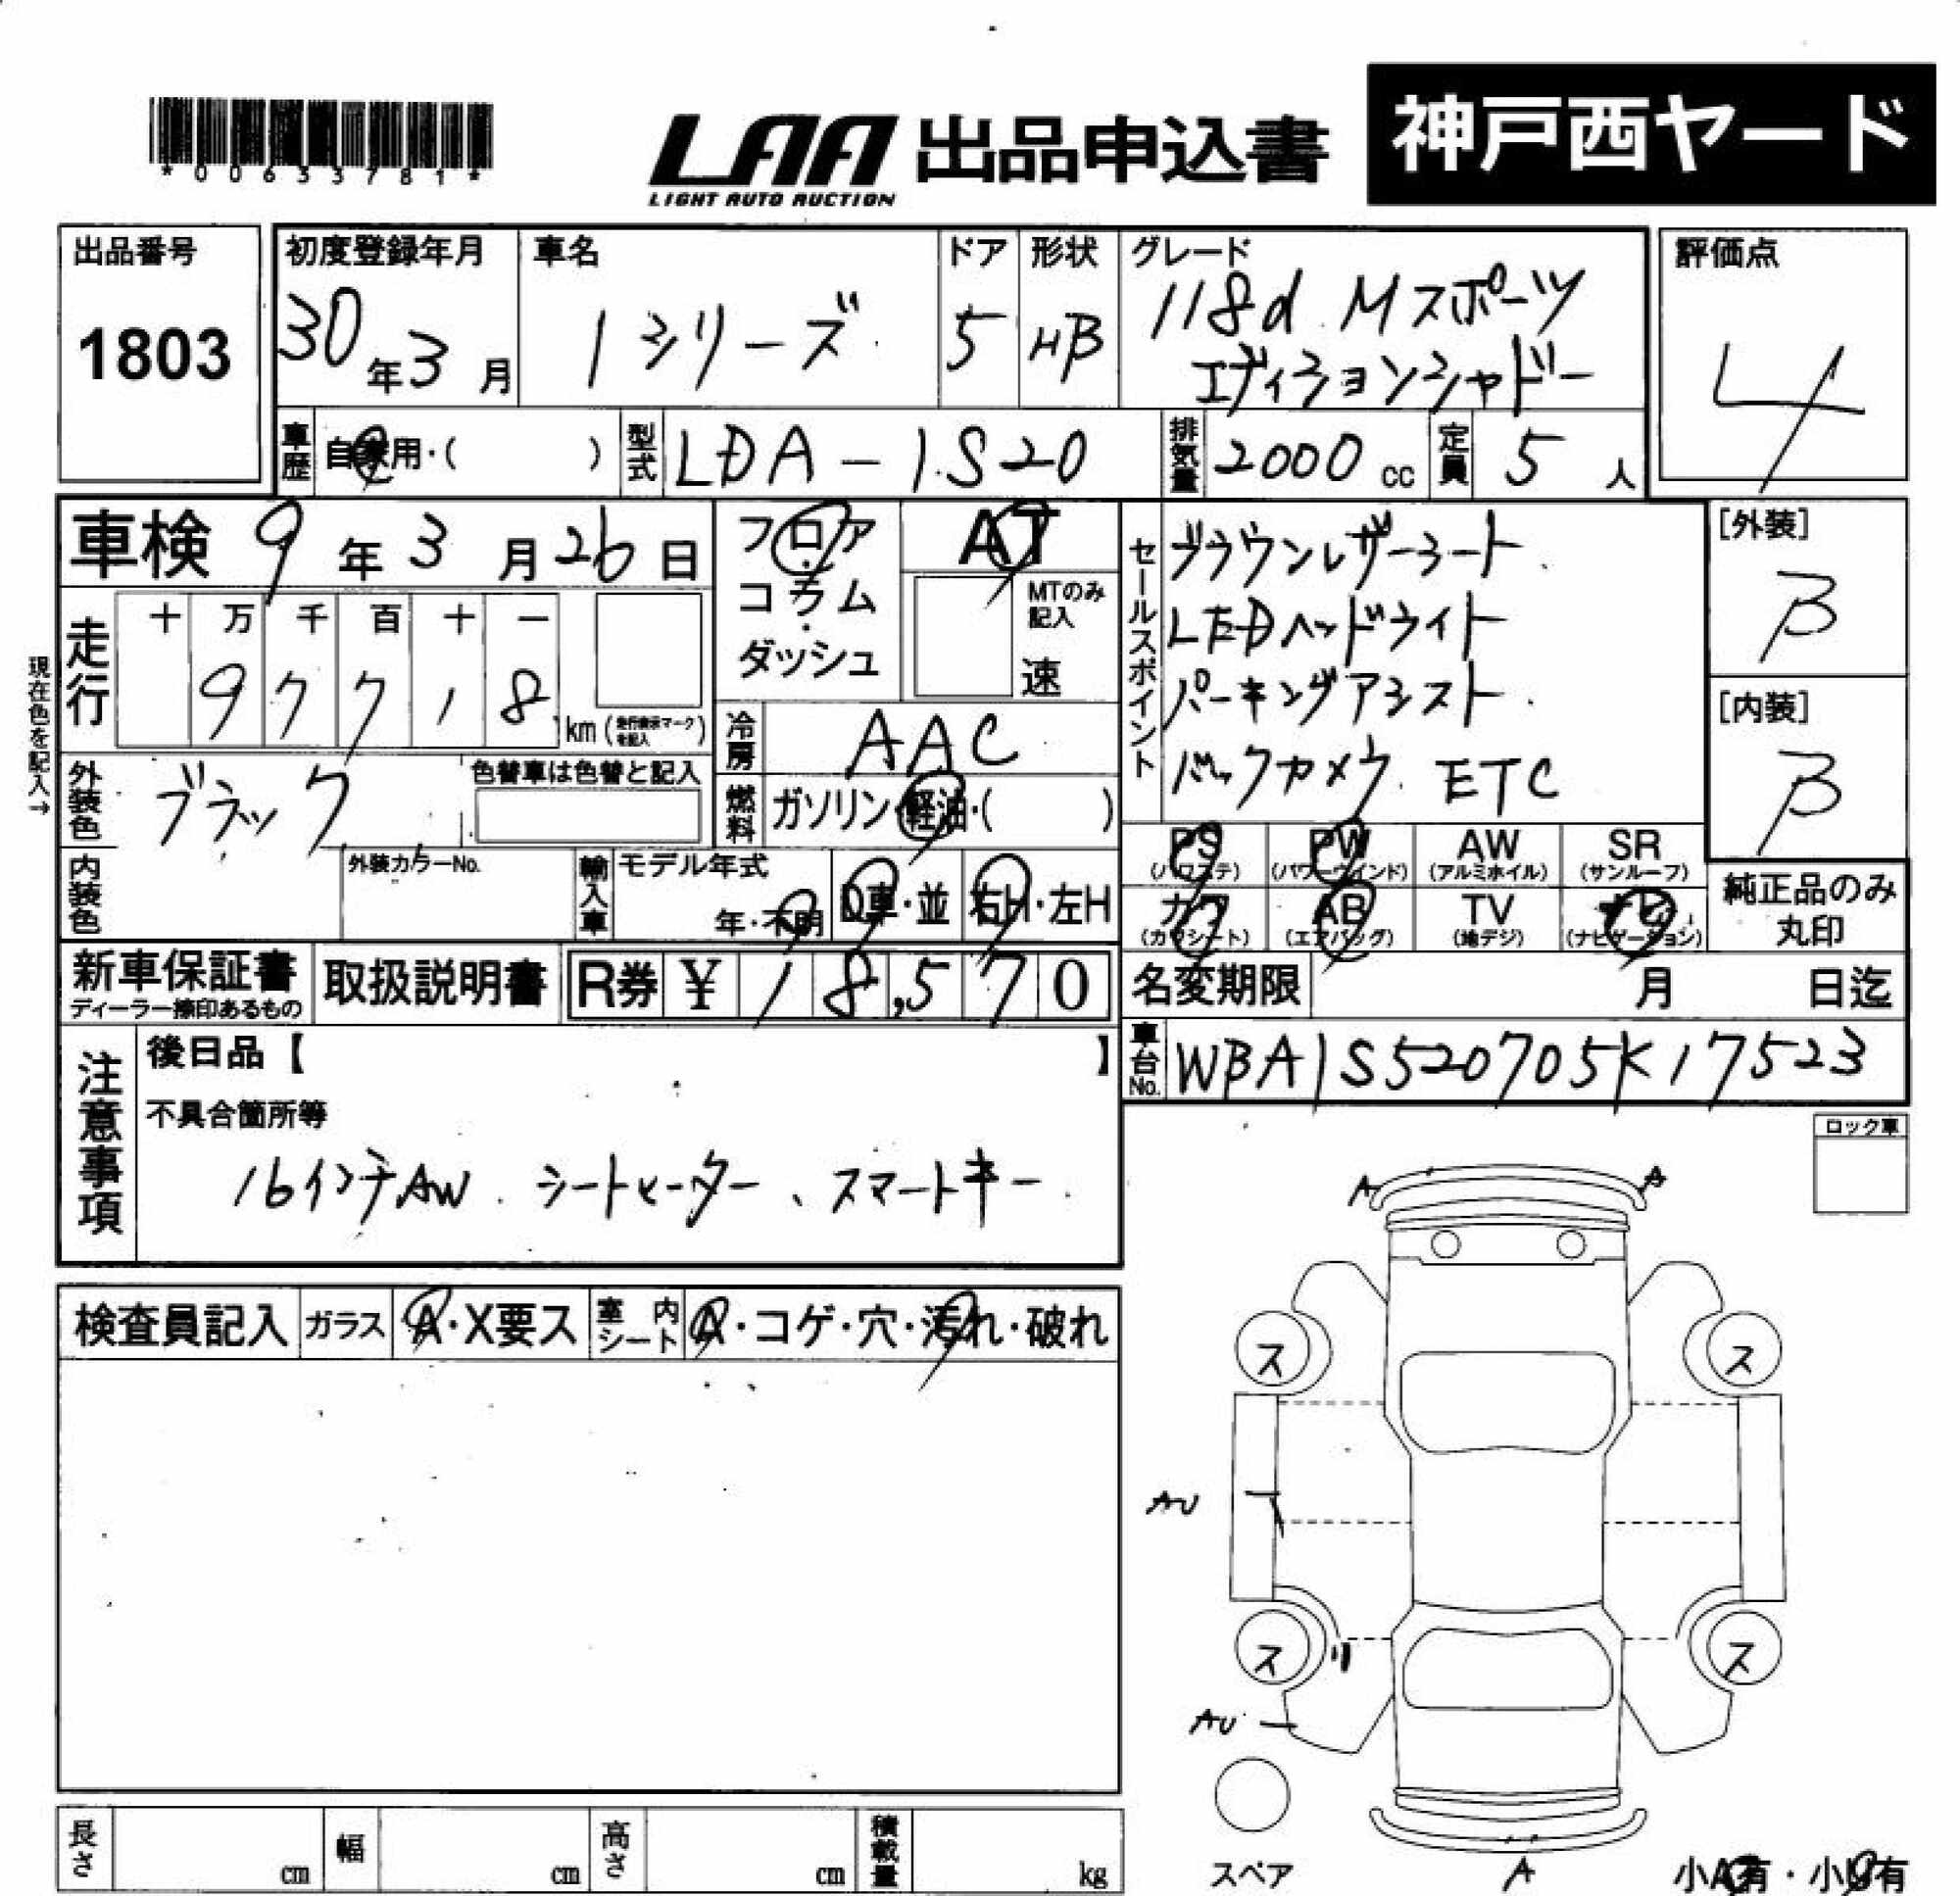 *00633781*
LAA 出品申込書 神戸西ヤード
LIGHT AUTO AUCTION
出品番号 初度登録年月 車名 ドア 形状 グレード 評価点
1803 30年3月 1シリーズ 5 HB 118d Mスポーツ 4
エディションシャドー
車歴 自家用・( ) 型式 LDA-1S20 排気量 2000 cc 定員 5 人
車検 9年3月26日 フロア・コラム・ダッシュ AT
MTのみ記入 速
セールスポイント ブラウンレザーシート
LEDヘッドライト
パーキングアシスト
バックカメラ ETC
[外装] B
[内装] B
現在色を記入→
走行 十 万 千 百 十 一
97718 km (走行表示マークを記入)
冷房 AAC
外装色 ブラック 色替車は色替と記入
燃料 ガソリン・軽油・( )
PS (パワステ) PW (パワーウインド) AW (アルミホイル) SR (サンルーフ)
カワ (カワシート) AB (エアバッグ) TV (地デジ) ナビ (ナビゲーション)
純正品のみ丸印
内装色 外装カラーNo. 輸入車 モデル年式 年・不明 D車・並 右H・左H
新車保証書 取扱説明書 R券 ¥ 18,570
ディーラー捺印あるもの
名変期限 月 日迄
車台No. WBA1S520705K17523
注意事項 後日品【 】
不具合箇所等
16インチAW、シートヒーター、スマートキー
ロック車
検査員記入 ガラス A・X要ス 室内シート A・コゲ・穴・汚れ・破れ
A A
ス ス
AU
ス リ ス
AU
スペア A 小A有・小U有
長さ cm 幅 cm 高さ cm 積載量 kg